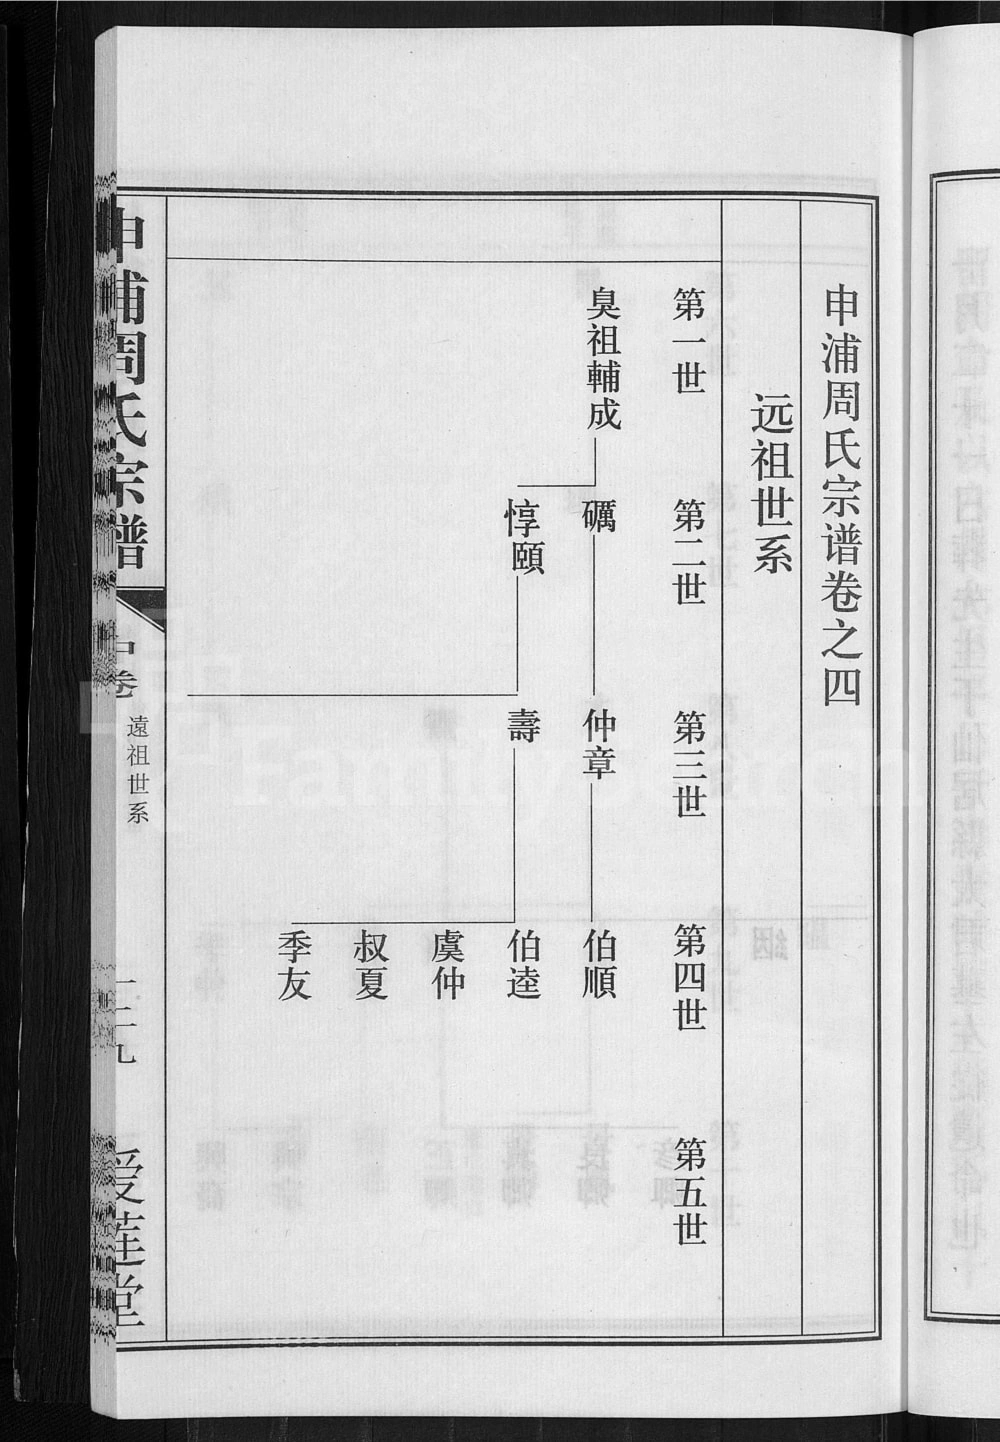 申浦周氏宗谱卷之四
远祖世系
第一世
第二世
第三世
第四世
第五世
臭祖輔成
礪
仲章
伯順
惇頤
壽
伯逵
虞仲
叔夏
季友
申浦周氏宗譜
中卷
遠祖世系
一二九
爱莲堂